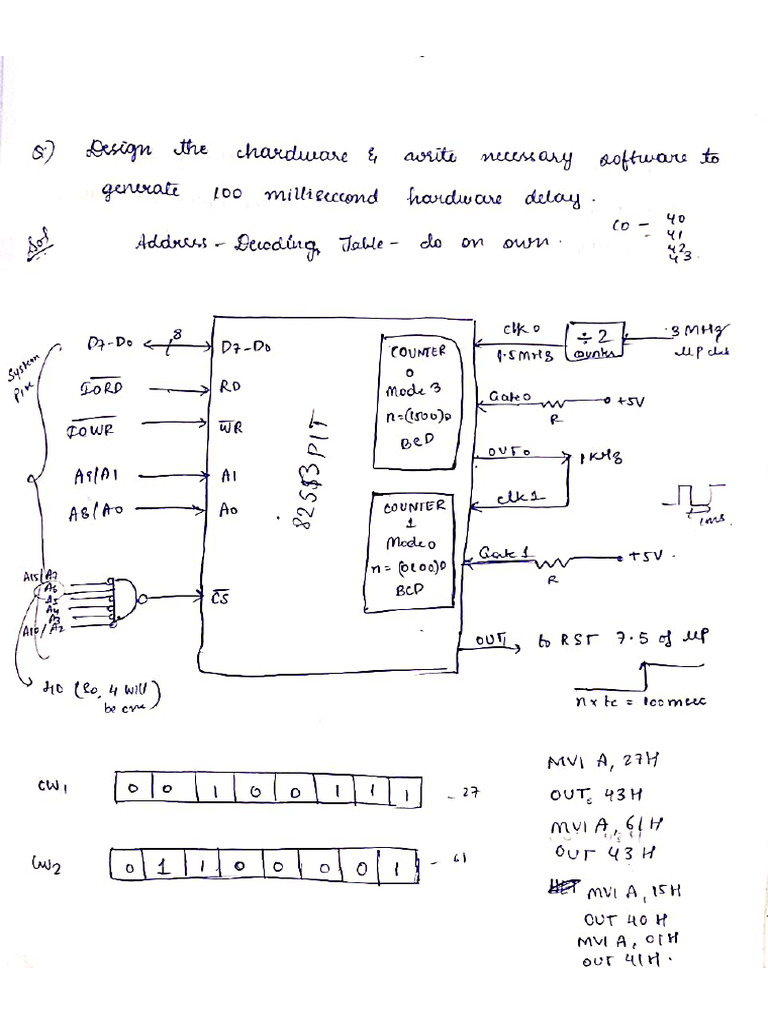 Q.) Design the hardware & write necessary software to
generate 100 millisecond hardware delay.
Sol
Address-Decoding Table - do on own.
CO - 40
41
42
43
System
Pins
D7-D0
8
D7-D0
IORD
RD
IOWR
WR
A9/A1
A1
A8/A0
A0
A15/A7
A6
A5
A4
A3
A10/A2
CS
40 (So, 4 will
be one)
8253 PIT
COUNTER
0
Mode 3
n=(1500)D
BCD
COUNTER
1
Mode 0
n=(0100)D
BCD
clk 0
1.5MHz
÷2
counter
3 MHz
μP clk
Gate 0
R
+5V
OUT 0
1KHz
clk 1
1ms.
Gate 1
R
+5V.
OUT1
to RST 7.5 of μP
n x tc = 100 msec
CW1
0 0 1 0 0 1 1 1
- 27
CW2
0 1 1 0 0 0 0 1
- 61
MVI A, 27H
OUT 43H
MVI A, 61H
OUT 43H
MVI A, 15H
OUT 40H
MVI A, 01H
OUT 41H.